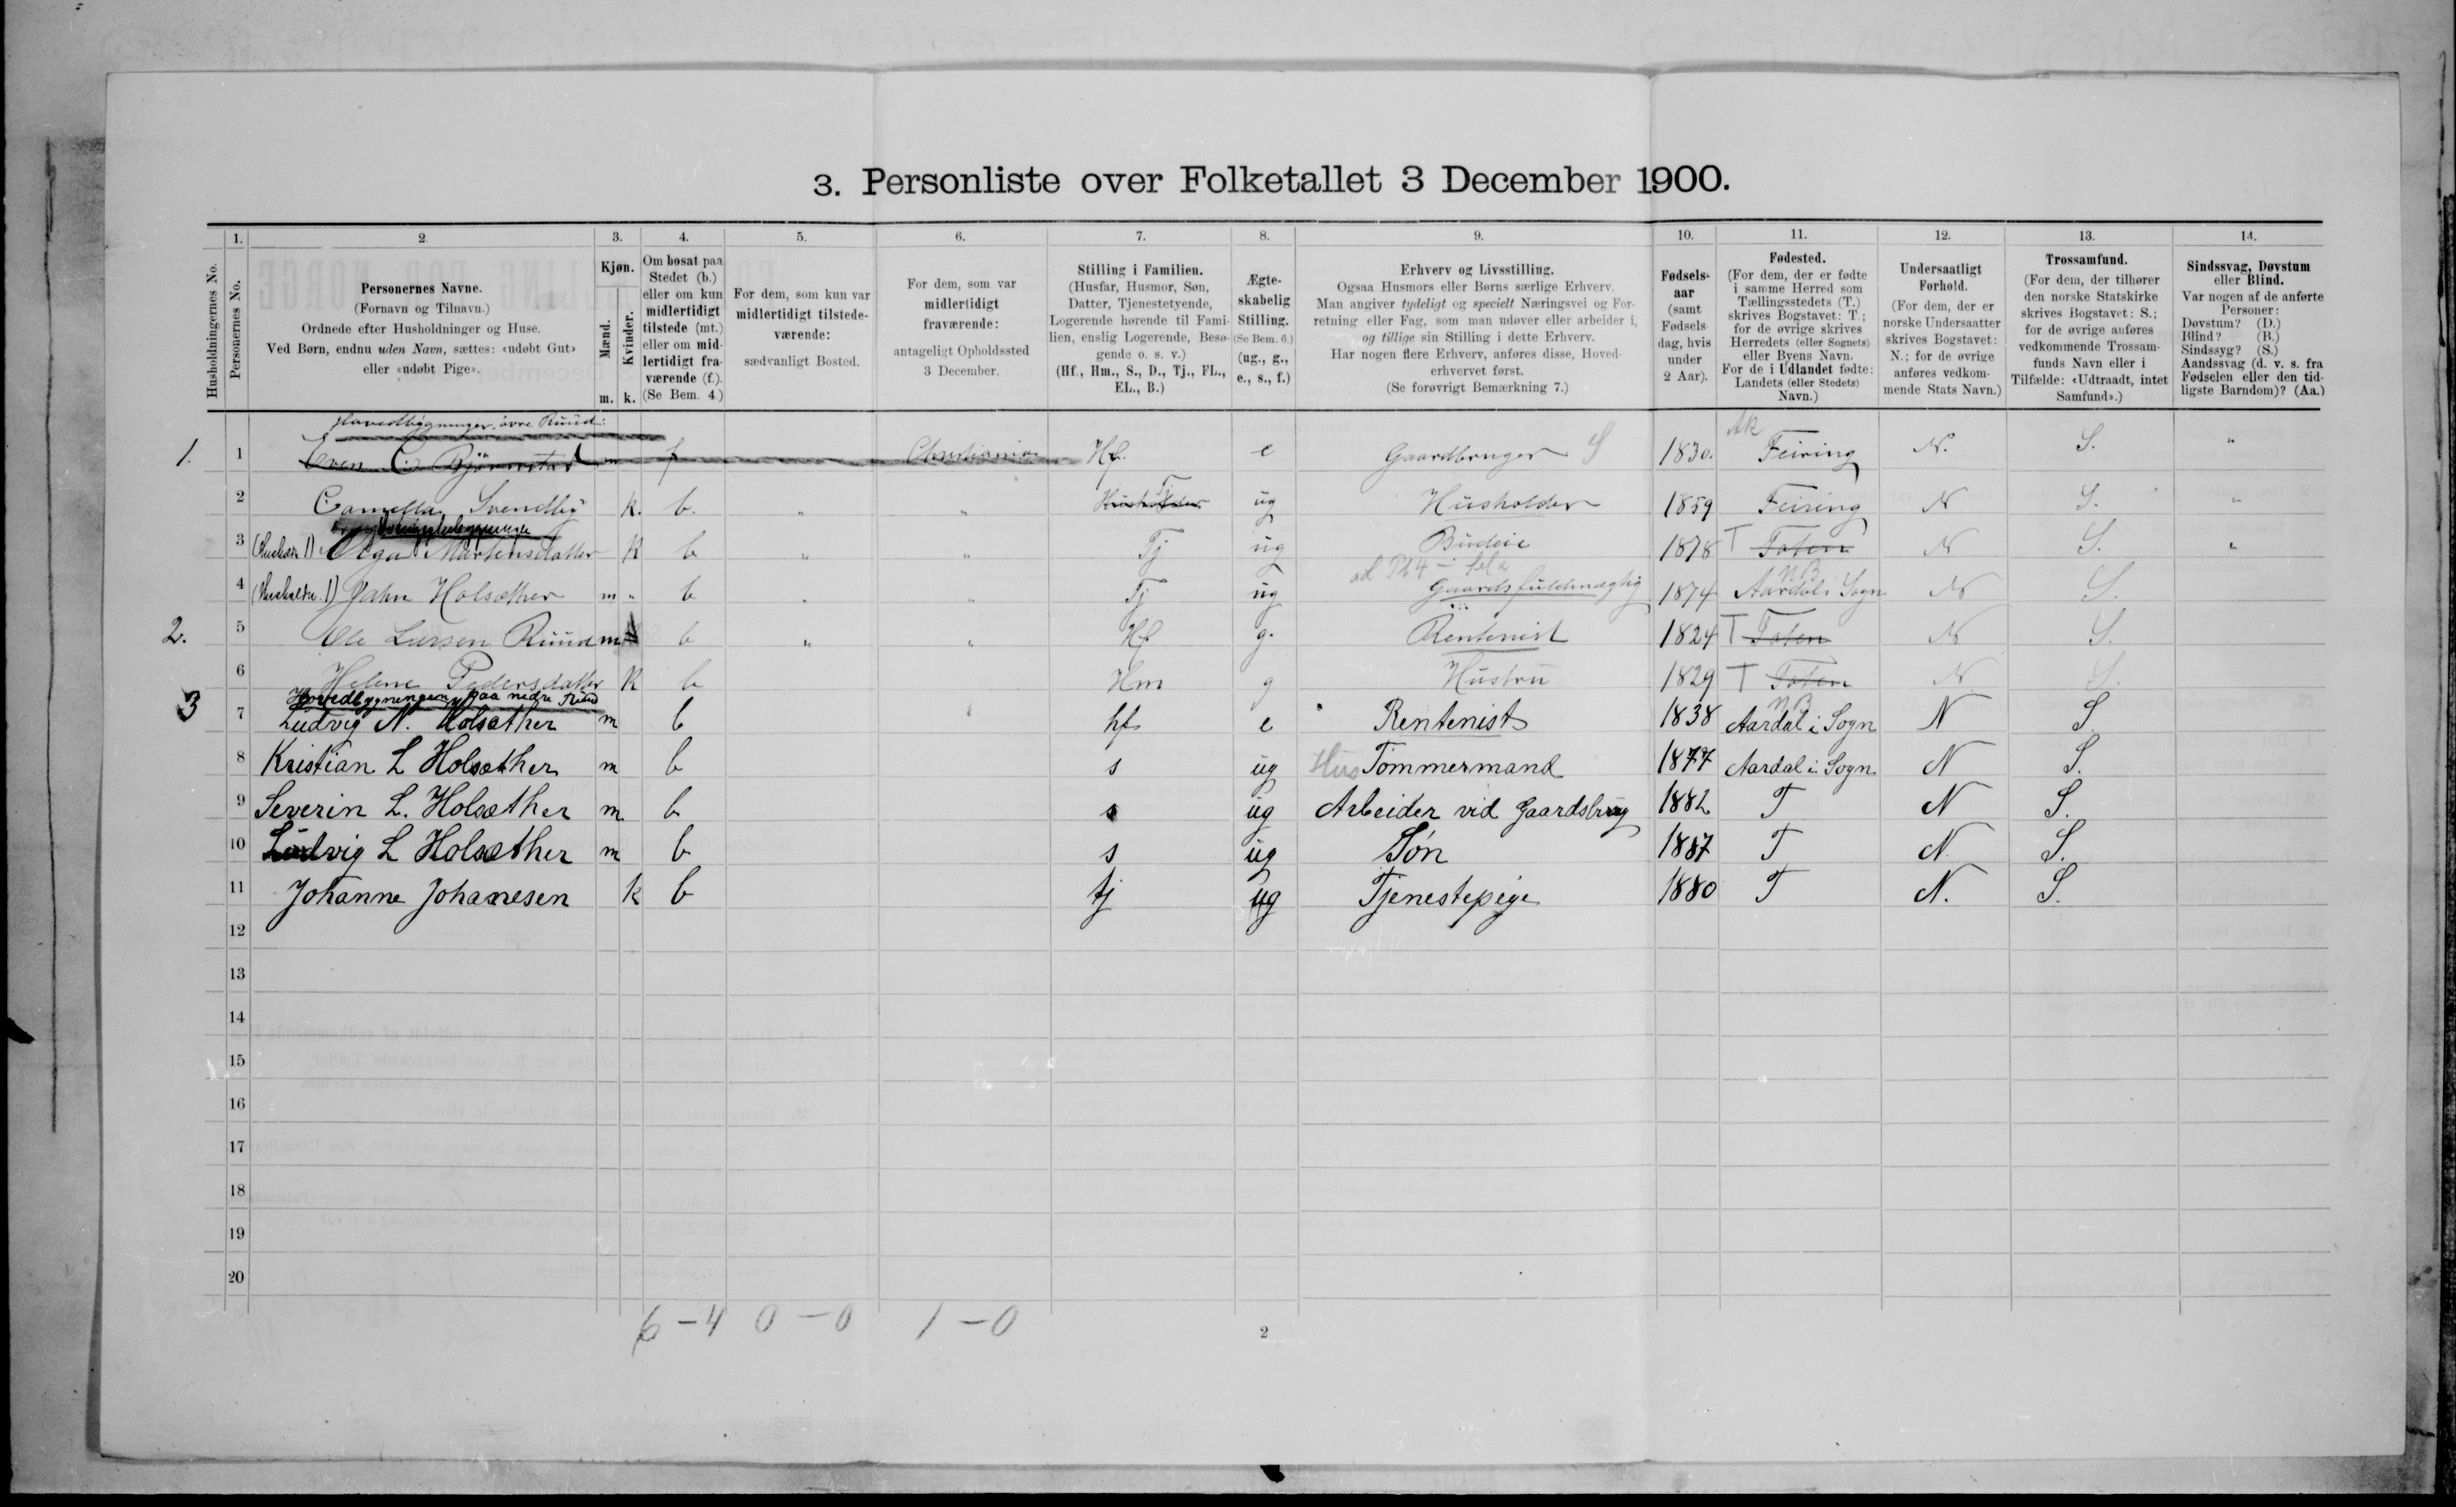 3. Personliste over Folketallet 3 December 1900.
Husholdningernes No.
1.
Personernes No.
2
Personernes Navne.
(Fornavn og Tilnavn.)
Ordnede efter Husholdninger og Huse.
Ved Børn, endnu uden Navn, sættes: «udøbt Gut»
eller «udøbt Pige».
3.
Kjøn.
Mænd.
Kvinder.
m. k.
4.
Om bosat paa
Stedet (b.)
eller om kun
midlertidigt
tilstede (mt.)
eller om mid-
lertidigt fra-
værende (f.).
(Se Bem. 4.)
5.
For dem, som kun var
midlertidigt tilstede-
værende:
sædvanligt Bosted.
6.
For dem, som var
midlertidigt
fraværende:
antageligt Opholdssted
3 December.
7.
Stilling i Familien.
(Husfar, Husmor, Søn,
Datter, Tjenestetyende,
Logerende hørende til Fami-
lien, enslig Logerende, Besø-
gende o. s. v.)
(Hf., Hm., S., D., Tj., FL.,
EL., B.)
8.
Ægte-
skabelig
Stilling.
(Se Bem. 6.)
(ug., g.,
e., s., f.)
9.
Erhverv og Livsstilling.
Ogsaa Husmors eller Børns særlige Erhverv.
Man angiver tydeligt og specielt Næringsvei og For-
retning eller Fag, som man udøver eller arbeider i,
og tillige sin Stilling i dette Erhverv.
Har nogen flere Erhverv, anføres disse, Hoved-
erhvervet først.
(Se forøvrigt Bemærkning 7.)
10.
Fødsels-
aar
(samt
Fødsels-
dag, hvis
under
2 Aar).
11.
Fødested.
(For dem, der er fødte
i samme Herred som
Tællingsstedets (T.)
skrives Bogstavet: T.;
for de øvrige skrives
Herredets (eller Sognets)
eller Byens Navn.
For de i Udlandet fødte:
Landets (eller Stedets)
Navn.)
12.
Undersaatligt
Forhold.
(For dem, der er
norske Undersaatter
skrives Bogstavet:
N.; for de øvrige
anføres vedkom-
mende Stats Navn.)
13.
Trossamfund.
(For dem, der tilhører
den norske Statskirke
skrives Bogstavet: S.;
for de øvrige anføres
vedkommende Trossam-
funds Navn eller i
Tilfælde: «Udtraadt, intet
Samfund».)
14.
Sindssvag, Døvstum
eller Blind.
Var nogen af de anførte
Personer:
Døvstum? (D.)
Blind? (B.)
Sindssyg? (S.)
Aandssvag (d. v. s. fra
Fødselen eller den tid-
ligste Barndom)? (Aa.)
Hovedbygningen øvre Ruud:
1. 1 Even C. Bjørnstad m f Christiania Hf. e Gaardbruger S 1830. Ak Feiring N. S. "
2 Camilla Svendby K. b. " " Tj ug Husholder 1859 Feiring N S. "
3 (Hushold. 1) Olga Martensdatter K b " " Tj ug Budeie 1878 T Toten N S. "
4 (Hushold. 1) Jahn Holsæther m " b " " Tj ug Gaardsfuldmægtig 1874 NB Aardal i Sogn N S.
2. 5 Ole Larsen Ruud m b " " Hf g. Rentenist 1824 T Toten N S.
6 Helene Pedersdatter K b Hm g Hustru 1829 T Toten N S.
Hovedbygningen paa nedre Ruud
3 7 Ludvig N. Holsæther m b hf e Rentenist 1838 NB Aardal i Sogn N S.
8 Kristian L Holsæther m b s ug Hus Tømmermand 1877 Aardal i Sogn N S.
9 Severin L. Holsæther m b s ug Arbeider vid Gaardsbrug 1882 T N S.
10 Ludvig L Holsæther m b s ug Søn 1887 T N. S.
11 Johanne Johanesen k b tj ug Tjenestepige 1880 T N. S.
12
13
14
15
16
17
18
19
20
6 - 4 0 - 0 1 - 0
2